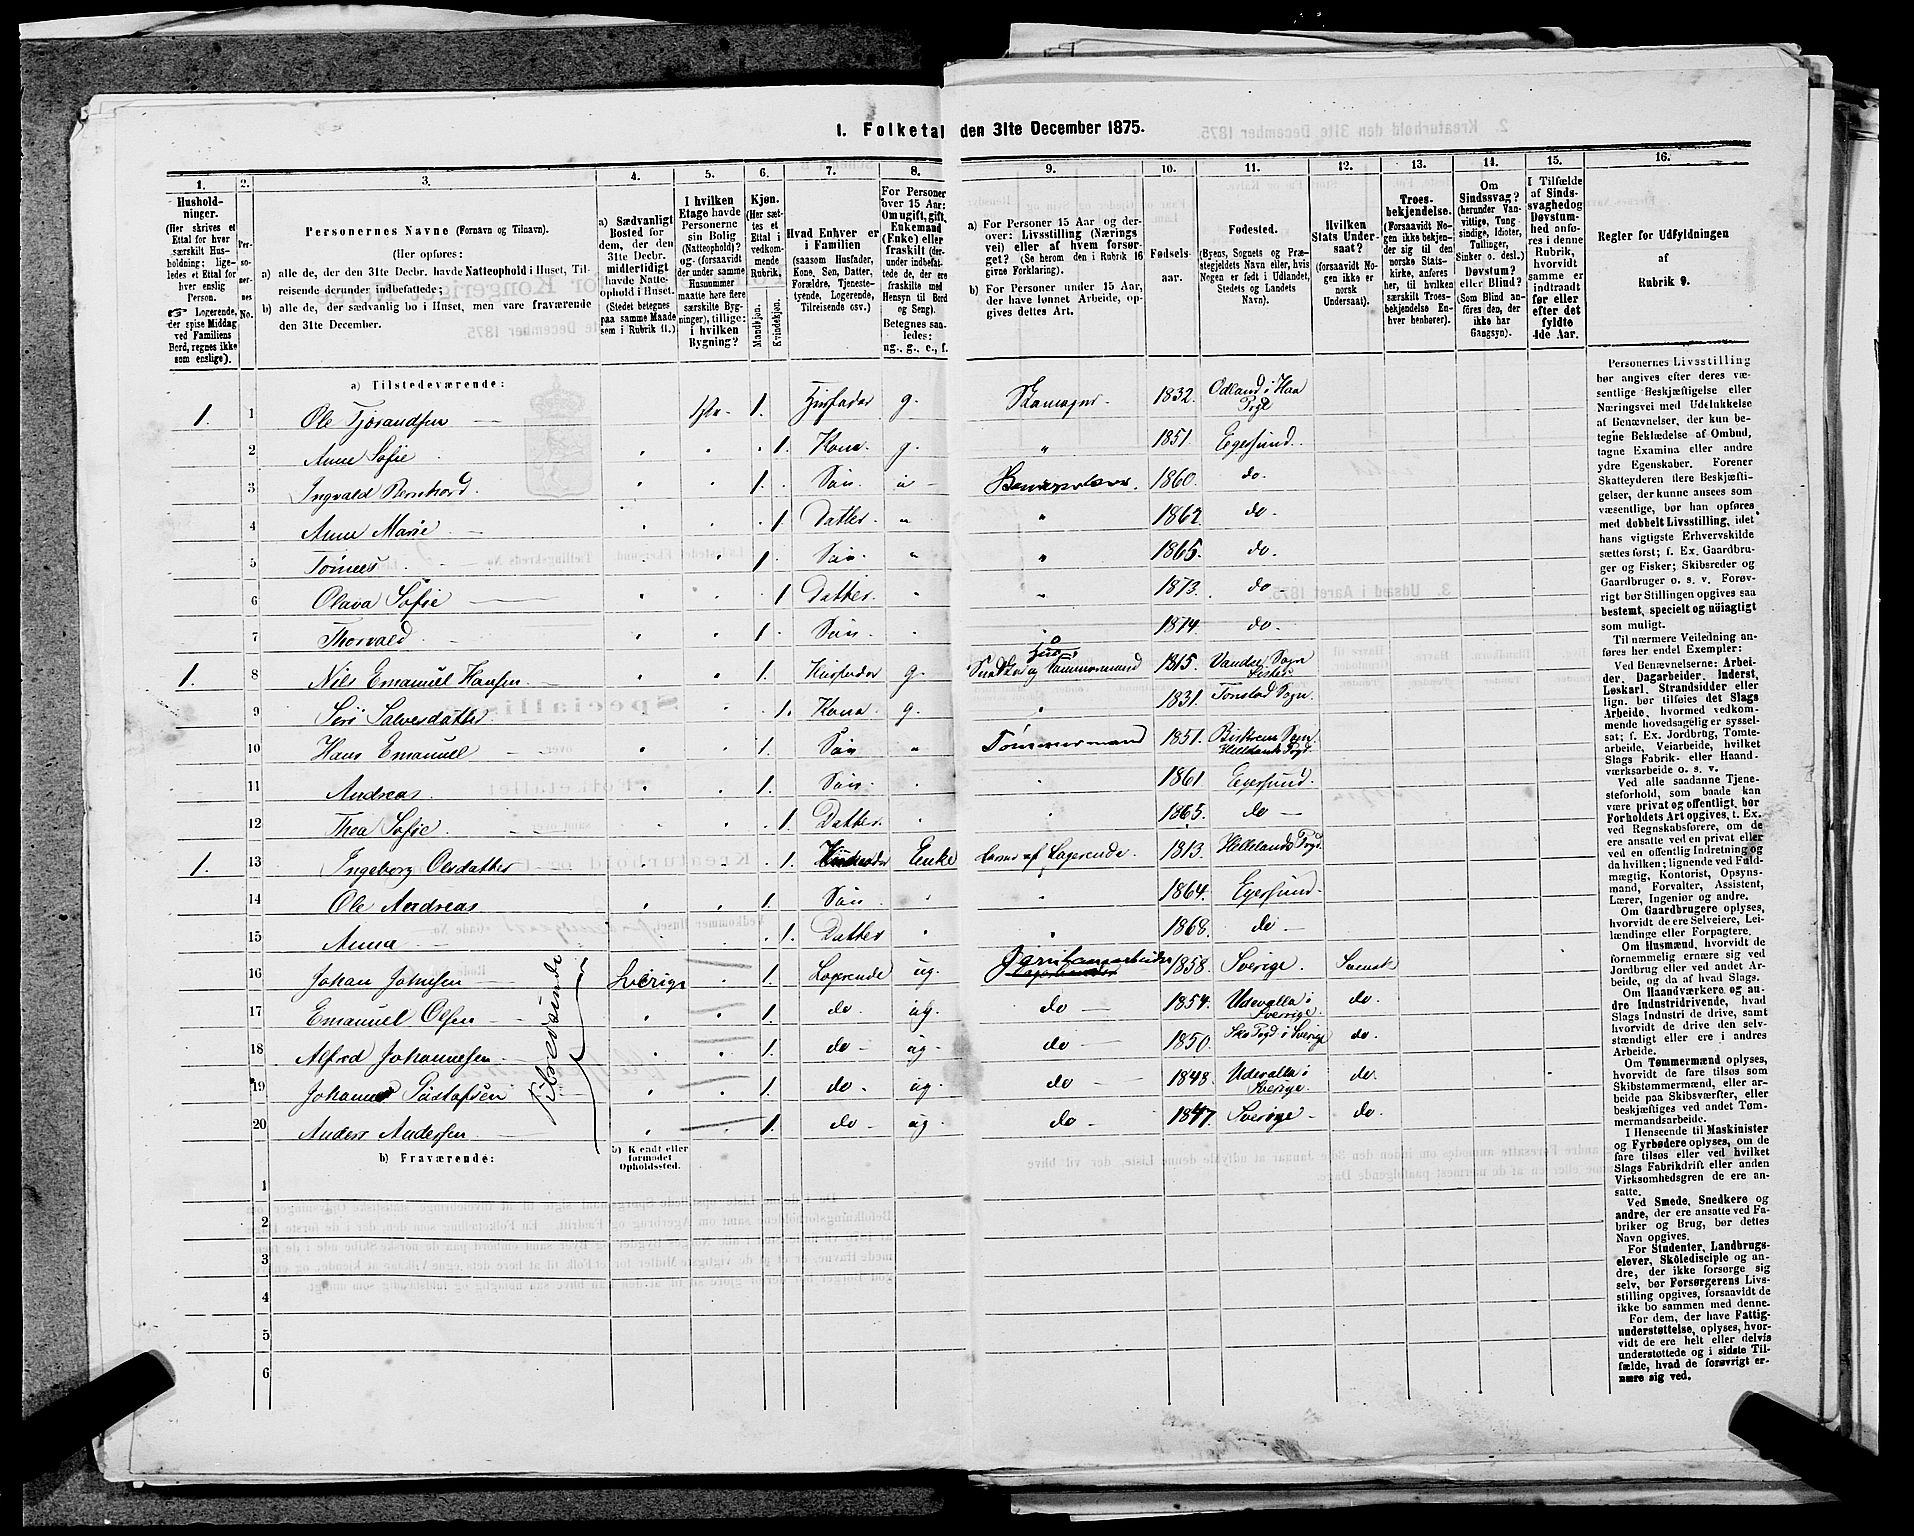 1. Folketal den 31te December 1875.
1. 2. 3. 4. 5. 6. 7. 8. 9. 10. 11. 12. 13. 14. 15. 16.
Hushold-
ninger.
(Her skrives et
Ettal for hver
særskilt Hus-
holdning; lige-
ledes et Ettal for
hver enslig
Person.
☞ Logerende,
der spise Middag
ved Familiens
Bord, regnes ikke
som enslige).
Per-
so-
ner-
nes
No.
Personernes Navne (Fornavn og Tilnavn).
(Her opføres:
a) alle de, der den 31te Decbr. havde Natteophold i Huset, Til-
reisende derunder indbefattede;
b) alle de, der sædvanlig bo i Huset, men vare fraværende
den 31te December.
a) Sædvanligt
Bosted for
dem, der den
31te Decbr.
midlertidigt
havde Natte-
ophold i Huset
(Stedet betegnes
paa samme Maade
som i Rubrik 11.)
I hvilken
Etage havde
Personerne
sin Bolig
(Natteophold)?
og (forsaavidt
der under samme
Husnummer
maatte høre flere
særskilte Byg-
ninger), tillige:
i hvilken
Bygning?
Kjøn.
(Her sæt-
tes et
Ettal i
vedkom-
mende
Rubrik.
Mandkjøn.
Kvindekjøn.
Hvad Enhver er
i Familien
(saasom Husfader,
Kone, Søn, Datter,
Forældre, Tjeneste-
tyende, Logerende,
Tilreisende osv.)
For Personer
over 15 Aar:
Om ugift, gift,
Enkemand
(Enke) eller
fraskilt (der-
under indbefat-
tede de, der ere
fraskilte med
Hensyn til Bord
og Seng).
Betegnes saa-
ledes:
ug., g., e., f.
a) For Personer 15 Aar og der-
over: Livsstilling (Nærings-
vei) eller af hvem forsør-
get? (Se herom den i Rubrik 16
givne Forklaring).
b) For Personer under 15 Aar,
der have lønnet Arbeide, op-
gives dettes Art.
Fødsels-
aar.
Fødested.
(Byens, Sognets og Præ-
stegjeldets Navn eller, hvis
Nogen er født i Udlandet,
Stedets og Landets
Navn).
Hvilken
Stats Under-
saat?
(forsaavidt No-
gen ikke er
norsk
Undersaat).
Troes-
bekjendelse.
(Forsaavidt No-
gen ikke bekjen-
der sig til den
norske Stats-
kirke, anføres
her, til hvilken
særskilt Troes-
bekjendelse En-
hver henhører).
Om
Sindssvag?
(herunder Van-
vittige, Tung-
sindige, Idioter,
Tullinger,
Sinker o. desl.)
Døvstum?
eller Blind?
(Som Blind an-
føres den, der
ikke har
Gangsyn).
I Tilfælde
af Sinds-
svaghed og
Døvstum-
hed onfø-
res i denne
Rubrik,
hvorvidt
samme er
indtraadt
før eller
efter det
fyldte
4de Aar.
Regler for Udfyldningen
af
Rubrik 9.
a) Tilstedeværende:
1. 1 Ole Tjorandsen 1. Husfader g. 1832. Odland i Haa Pgd
2 Anne Sofie 1. Kone g. " 1851. Egersund.
3 Ingvald Bernhard. 1. Søn 1860. do.
4 Anne Marie 1. Datter. " 1862. do.
5 Tønnes 1. Søn. " 1865. do.
6 Olava Sofie 1 Datter. " 1873. do
7 Thorvald 1. Søn. 1874. do.
1. 8 Nils Emanuel Hansen 1. Husfader g. Snedker og Hustømmermand 1815. Vandse Sogn Lister
9 Siri Salvesdatter 1. Kona g. 1831. Tonstad Sogn.
10 Hans Emanuel 1. Søn " Tømmermand 1851. Sogn. Hellands Pgd.
11 Andreas 1. Søn. 1861. Egersund.
12 Thea Sofie. 1. Datter. 1865. do
1. 13 Ingeborg Olsdatter 1. Enke af Logerende. 1813. Hellelands Pgd.
14 Ole Andreas 1. Søn. 1864. Egersund.
15 Anna 1. Datter 1868. do
16 Johan Johnsen Sverige 1. Logerende ug. 1858. Sverige. Svensk
17 Emanuel Olsen 1. do ug. do 1854. Udevalla i Sverige. do.
18 Alfred Johannesen 1. do ug. do 1850. Pgd i Sverige do.
19 Johannes Gustafsen 1. do. ug. do 1848. Udevalla i Sverige. do.
20 Anders Andersen 1. do ug. do 1847. Sverige. do.
Tilreisende
b) Fraværende:
b) Kjendt eller
formodet
Opholdssted.
1
2
3
4
5
6
Personernes Livsstilling
bør angives efter deres væ-
sentlige Beskjæftigelse eller
Næringsvei med Udelukkelse
af Benævnelser, der kun be-
tegne Beklædelse af Ombud,
tagne Examina eller andre
ydre Egenskaber. Forener
Skatteyderen flere Beskjæfti-
gelser, der kunne ansees som
væsentlige, bør han opføres
med dobbelt Livsstilling, idet
hans vigtigste Erhvervskilde
sættes først; f. Ex. Gaardbru-
ger og Fisker; Skibsreder og
Gaardbruger o. s. v. Forøv-
rigt bør Stillingen opgives saa
bestemt, specielt og nöiagtigt
som muligt.
Til nærmere Veiledning an-
føres her endel Exempler:
Ved Benævnelserne: Arbei-
der, Dagarbeider, Inderst,
Løskarl, Strandsidder eller
lign. bør tilføies det Slags
Arbeide, hvormed vedkom-
mende hovedsagelig er syssel-
sat; f. Ex. Jordbrug, Tomte-
arbeide, Veiarbeide, hvilket
Slags Fabrik- eller Haand-
værksarbeide o. s. v.
Ved alle saadanne Tjene-
steforhold, som baade kan
være privat og offentligt, bør
Forholdets Art opgives, t. Ex.
ved Regnskabsførere, om de
ere ansatte ved en privat eller
ved en offentlig Indretning og
da hvilken; lignende ved Fuld-
mægtig, Kontorist, Opsyns-
mand, Forvalter, Assistent,
Lærer, Ingeniør og andre.
Om Gaardbrugere oplyses,
hvorvidt de ere Selveiere, Lei-
lændinge eller Forpagtere.
Om Husmænd, hvorvidt de
fornemmelig ernære sig ved
Jordbrug eller ved andet Ar-
beide, og da af hvad Slags.
Om Haandværkere og an-
dre Industridrivende, hvad
Slags Industri de drive, samt
hvorvidt de drive den selv-
stændigt eller ere i andres
Arbeide.
Om Tømmermænd oplyses,
hvorvidt de fare tilsøs som
Skibstømmermænd, eller ar-
beide paa Skibsværfter, eller
beskjæftiges ved andet Tøm-
mermandsarbeide.
I Henseende til Maskinister
og Fyrbødere oplyses, om de
fare tilsøs eller ved hvilket
Slags Fabrikdrift eller anden
Virksomhedsgren de ere an-
satte.
Ved Smede, Snedkere og
andre, der ere ansatte ved Fa-
briker og Brug, bør dettes
Navn opgives.
For Studenter, Landbrugs-
elever, Skoledisciple og an-
dre, der ikke forsørge sig
selv, bør Forsørgerens Livs-
stilling opgives, forsaavidt de
ikke bo sammen med denne-
For dem, der have Fattig-
understøttelse, oplyses, hvor-
vidt de ere helt eller delvis
understøttede og i sidste Til-
fælde, hvad de forøvrigt er-
nære sig ved.